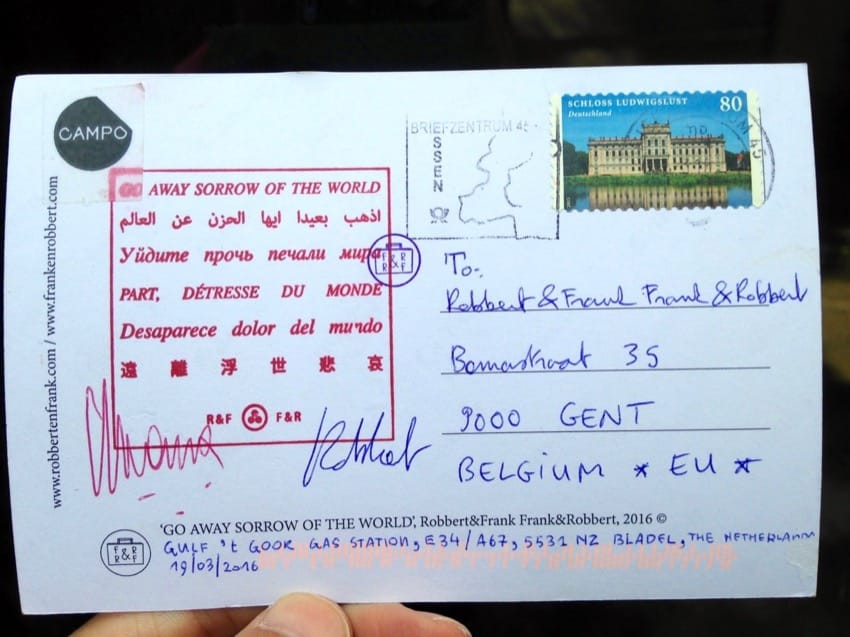 CAMPO
www.robbertenfrank.com / www.frankenrobbert.com
GO AWAY SORROW OF THE WORLD
اذهب بعيدا ايها الحزن عن العالم
Уйдите прочь печали мира
PART, DÉTRESSE DU MONDE
Desaparece dolor del mundo
遠離浮世悲哀
R&F F&R
Robbert
BRIEFZENTRUM 45
ESSEN
SCHLOSS LUDWIGSLUST 80
Deutschland
F&R
R F
To:
Robbert & Frank Frank & Robbert
Bomastraat 35
9000 GENT
BELGIUM * EU *
'GO AWAY SORROW OF THE WORLD', Robbert&Frank Frank&Robbert, 2016 ©
GULF 't GOOR GAS STATION, E34/A67, 5531 NZ BLADEL, THE NETHERLANDS
19/03/2016
F R
&
R F